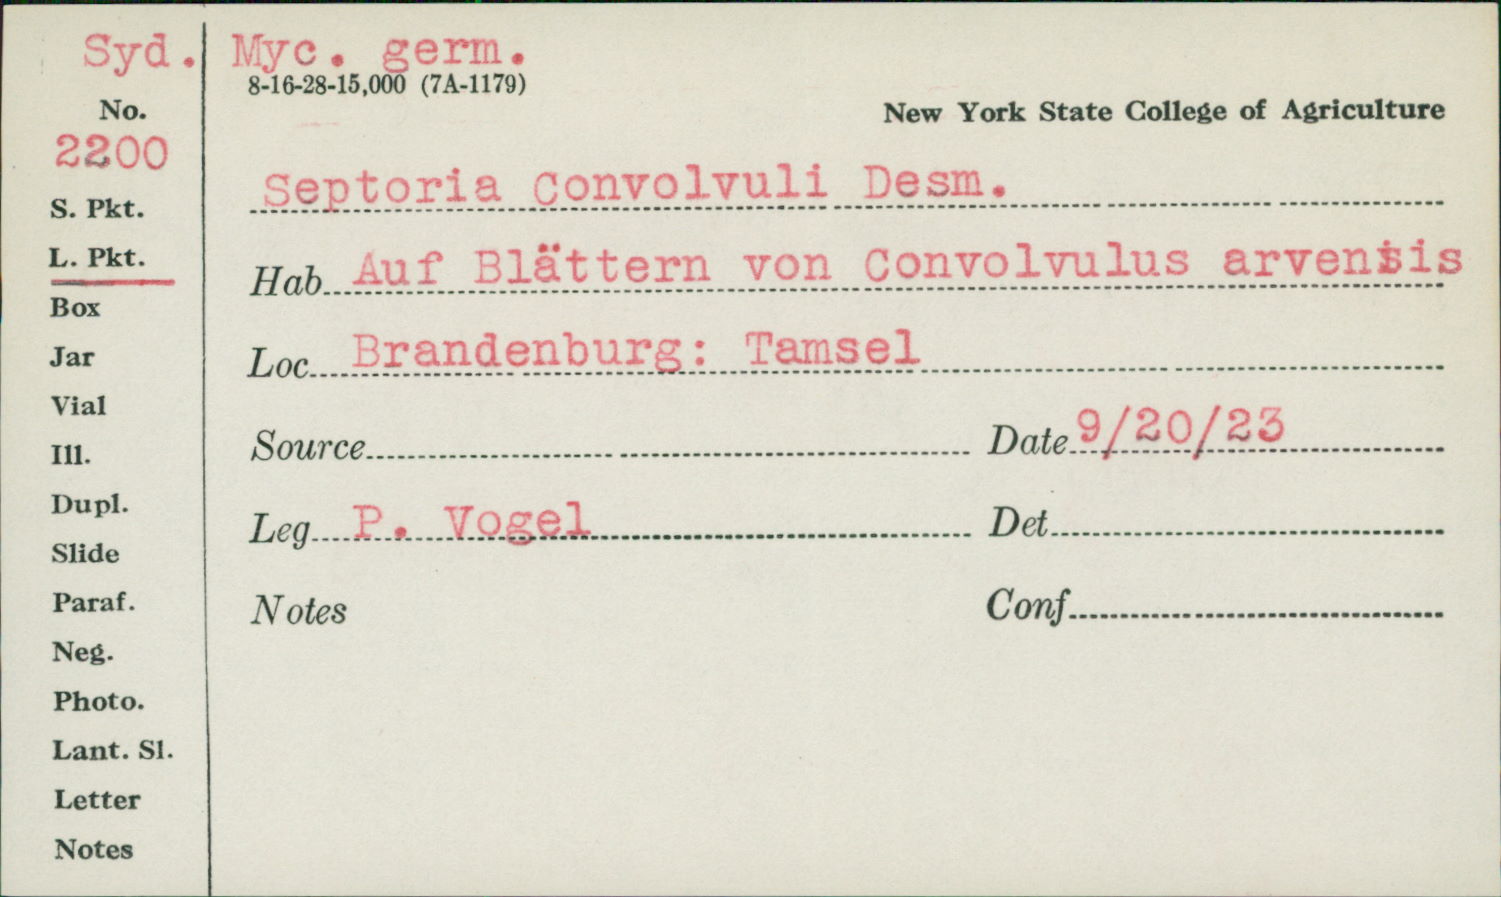 Syd. Myc. germ.
8-16-28-15,000 (7A-1179)
No.
New York State College of Agriculture
2200
Septoria Convolvuli Desm.
S. Pkt.
L. Pkt.
Hab. Auf Blättern von Convolvulus arvensis
Box
Loc. Brandenburg: Tamsel
Jar
Vial
Source
Date 9/20/23
Ill.
Dupl.
Leg. P. Vogel
Det
Slide
Paraf.
Notes
Conf
Neg.
Photo.
Lant. Sl.
Letter
Notes